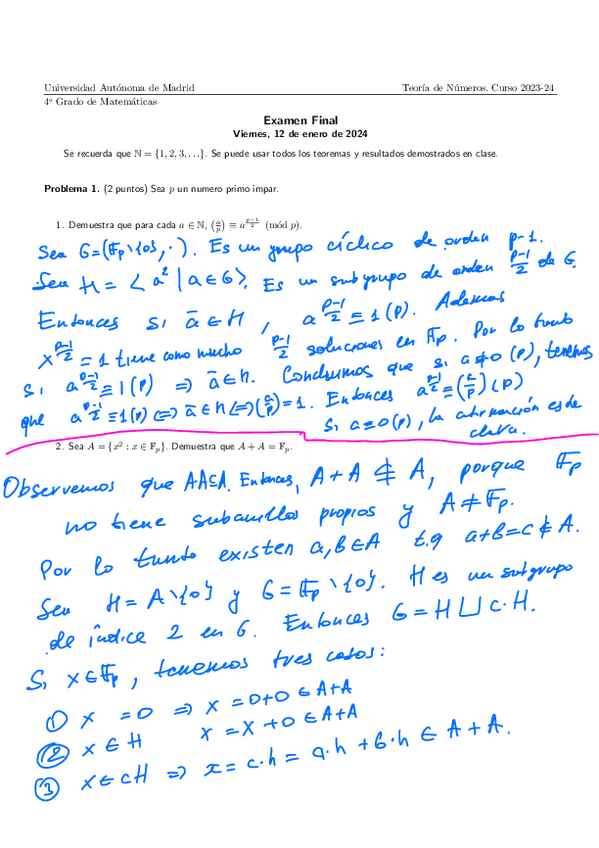 Universidad Autónoma de Madrid Teoría de Números. Curso 2023-24
4º Grado de Matemáticas
Examen Final
Viernes, 12 de enero de 2024
Se recuerda que ℕ = {1, 2, 3, ...}. Se puede usar todos los teoremas y resultados demostrados en clase.
Problema 1. (2 puntos) Sea p un numero primo impar.
1. Demuestra que para cada a ∈ ℕ, (a/p) ≡ a^((p−1)/2) (mód p).
Sea G=(𝔽p\{0}, ·). Es un grupo cíclico de orden p-1.
Sea H = < a² | a∈G>. Es un subgrupo de orden (p-1)/2 de G.
Entonces si ā∈H, a^((p-1)/2) ≡ 1 (p). Ademas
x^((p-1)/2) = 1 tiene como mucho (p-1)/2 soluciones en 𝔽p. Por lo tanto
si a^((p-1)/2) ≡ 1(p) ⇒ ā∈H. Concluimos que si a≢0 (p), tenemos
que a^((p-1)/2) ≡ 1(p) ⟺ ā∈H ⟺ (a/p)=1. Entonces a^((p-1)/2) ≡ (a/p) (p)
Si a≡0(p), la afirmación es de
clara.
2. Sea A = {x² : x ∈ 𝔽p}. Demuestra que A + A = 𝔽p.
Observemos que A·A⊆A. Entonces, A+A ⊈ A, porque 𝔽p
no tiene subanillos propios y A≠𝔽p.
Por lo tanto existen a,b∈A t.q a+b=c∉A.
Sea H = A\{0} y G=𝔽p\{0}. H es un subgrupo
de índice 2 en G. Entonces G=H⊔c·H.
Si x∈𝔽p, tenemos tres casos:
① x =0 ⇒ x =0+0 ∈ A+A
② x∈H x =x+0∈A+A
③ x∈cH ⇒ x= c·h = a·h +b·h ∈ A+A.